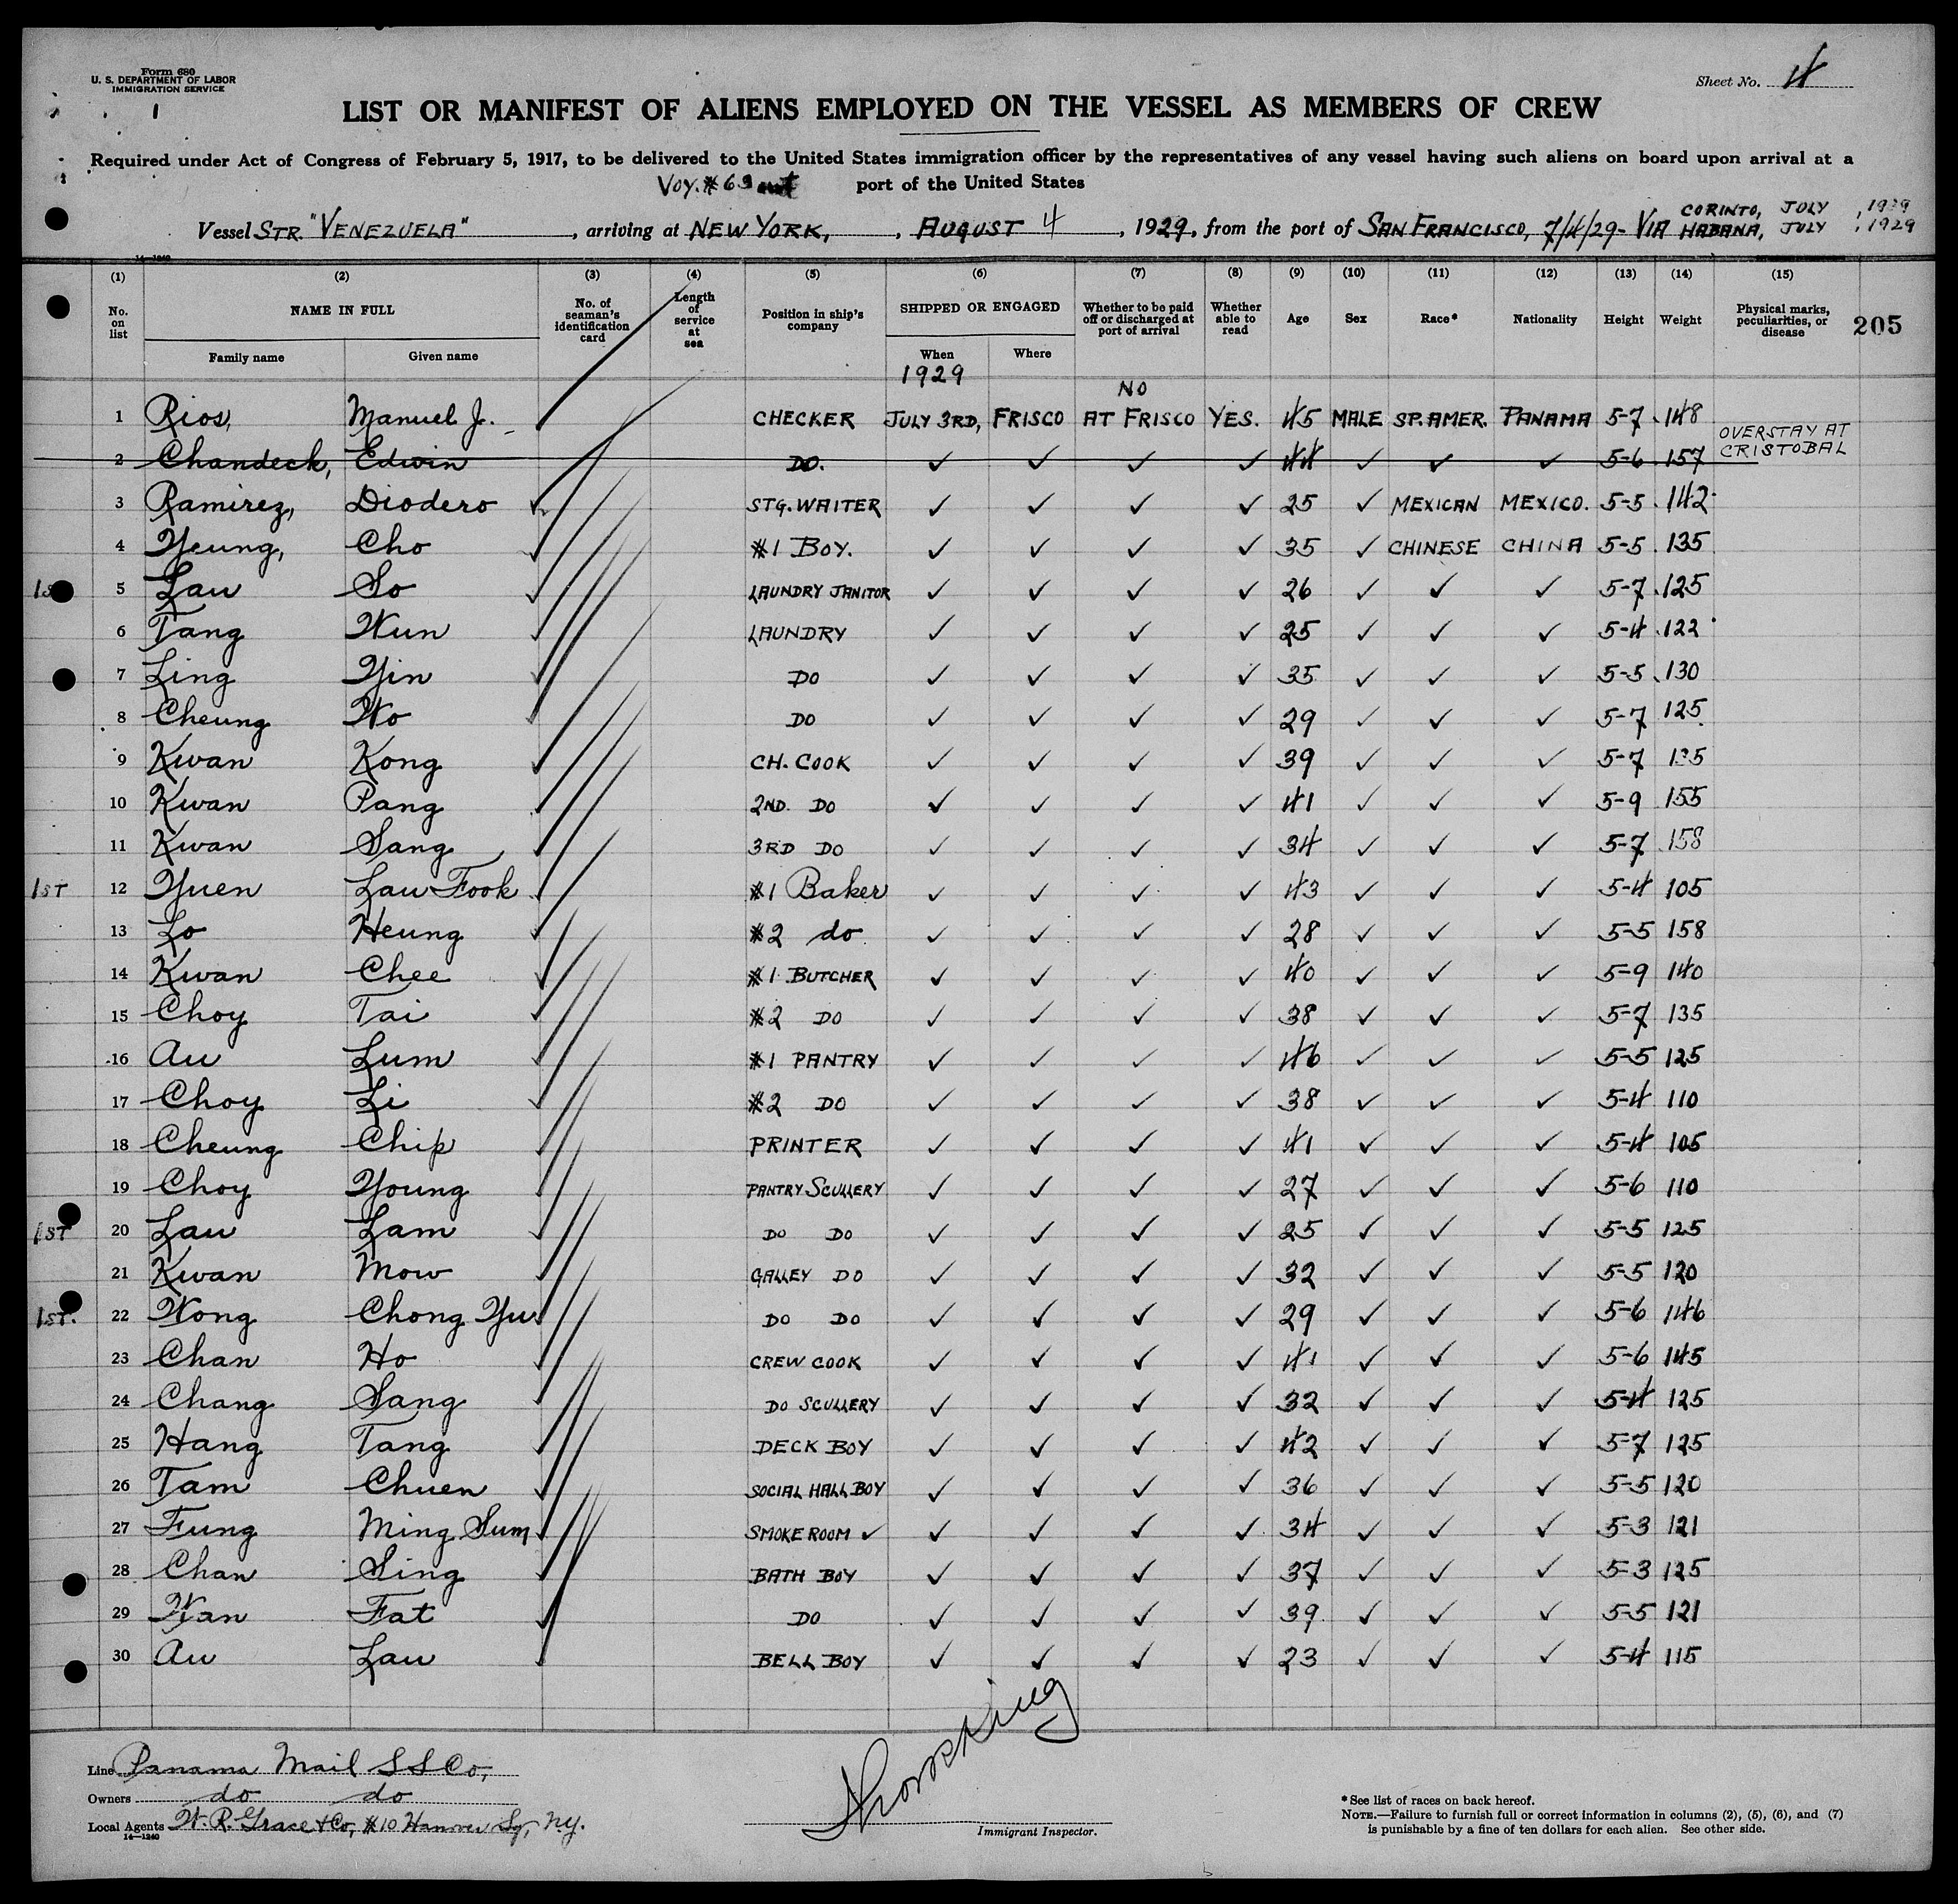 Form 680
U. S. DEPARTMENT OF LABOR
IMMIGRATION SERVICE
Sheet No. 4
LIST OR MANIFEST OF ALIENS EMPLOYED ON THE VESSEL AS MEMBERS OF CREW
Required under Act of Congress of February 5, 1917, to be delivered to the United States immigration officer by the representatives of any vessel having such aliens on board upon arrival at a
Voy. # 69 port of the United States
Vessel STR. "VENEZUELA", arriving at NEW YORK, AUGUST 4, 1929, from the port of SAN FRANCISCO, 7/4/29- VIA CORINTO, JULY , 1929
HABANA, JULY , 1929
14-1240
(1) (2) (3) (4) (5) (6) (7) (8) (9) (10) (11) (12) (13) (14) (15)
No. on list NAME IN FULL No. of seaman's identification card Length of service at sea Position in ship's company SHIPPED OR ENGAGED Whether to be paid off or discharged at port of arrival Whether able to read Age Sex Race* Nationality Height Weight Physical marks, peculiarities, or disease 205
Family name Given name When Where
1929 NO
1 Rios, Manuel J. CHECKER JULY 3RD, FRISCO AT FRISCO YES. 45 MALE SP. AMER. PANAMA 5-7 148
2 Chandeck, Edwin DO. ✓ ✓ ✓ ✓ 44 ✓ ✓ ✓ 5-6 157 OVERSTAY AT CRISTOBAL
3 Ramirez, Diodero STG. WAITER ✓ ✓ ✓ ✓ 25 ✓ MEXICAN MEXICO. 5-5 142
4 Yeung, Cho #1 BOY. ✓ ✓ ✓ ✓ 35 ✓ CHINESE CHINA 5-5 135
1st 5 Lau So LAUNDRY JANITOR ✓ ✓ ✓ ✓ 26 ✓ ✓ ✓ 5-7 125
6 Tang Wun LAUNDRY ✓ ✓ ✓ ✓ 25 ✓ ✓ ✓ 5-4 122
7 Ling Yin DO ✓ ✓ ✓ ✓ 35 ✓ ✓ ✓ 5-5 130
8 Cheung Wo DO ✓ ✓ ✓ ✓ 29 ✓ ✓ ✓ 5-7 125
9 Kwan Kong CH. COOK ✓ ✓ ✓ ✓ 39 ✓ ✓ ✓ 5-7
10 Kwan Pang 2ND. DO ✓ ✓ ✓ ✓ 41 ✓ ✓ ✓ 5-9 155
11 Kwan Sang 3RD DO ✓ ✓ ✓ ✓ 34 ✓ ✓ ✓ 5-7 158
1ST 12 Yuen Lau Fook #1 Baker ✓ ✓ ✓ ✓ 43 ✓ ✓ ✓ 5-4 105
13 Lo Heung #2 do ✓ ✓ ✓ ✓ 28 ✓ ✓ ✓ 5-5 158
14 Kwan Chee #1 BUTCHER ✓ ✓ ✓ ✓ 40 ✓ ✓ ✓ 5-9 140
15 Choy Tai #2 DO ✓ ✓ ✓ ✓ 38 ✓ ✓ ✓ 5-7 135
16 Au Lum #1 PANTRY ✓ ✓ ✓ ✓ 46 ✓ ✓ ✓ 5-5 125
17 Choy Li #2 DO ✓ ✓ ✓ ✓ 38 ✓ ✓ ✓ 5-4 110
18 Cheung Chip PRINTER ✓ ✓ ✓ ✓ 41 ✓ ✓ ✓ 5-4 105
19 Choy Young PANTRY SCULLERY ✓ ✓ ✓ ✓ 27 ✓ ✓ ✓ 5-6 110
1ST 20 Lau Lam DO DO ✓ ✓ ✓ ✓ 25 ✓ ✓ ✓ 5-5 125
21 Kwan Mow GALLEY DO ✓ ✓ ✓ ✓ 32 ✓ ✓ ✓ 5-5 120
1ST. 22 Wong Chong Yu DO DO ✓ ✓ ✓ ✓ 29 ✓ ✓ ✓ 5-6 146
23 Chan Ho CREW COOK ✓ ✓ ✓ ✓ 41 ✓ ✓ ✓ 5-6 145
24 Chang Sang DO SCULLERY ✓ ✓ ✓ ✓ 32 ✓ ✓ ✓ 5-4 125
25 Hang Tang DECK BOY ✓ ✓ ✓ ✓ 42 ✓ ✓ ✓ 5-7 125
26 Tam Chuen SOCIAL HALL BOY ✓ ✓ ✓ ✓ 36 ✓ ✓ ✓ 5-5 120
27 Fung Ming Sum SMOKE ROOM ✓ ✓ ✓ ✓ ✓ 34 ✓ ✓ ✓ 5-3 121
28 Chan Sing BATH BOY ✓ ✓ ✓ ✓ 37 ✓ ✓ ✓ 5-3 125
29 Wan Fat DO ✓ ✓ ✓ ✓ 39 ✓ ✓ ✓ 5-5 121
30 Au Lau BELL BOY ✓ ✓ ✓ ✓ 23 ✓ ✓ ✓ 5-4 115
Line Panama Mail S S Co,
Owners do do
Local Agents W. R. Grace & Co, #10 Hanover Sq, N.Y.
14-1240
Immigrant Inspector.
* See list of races on back hereof.
NOTE.—Failure to furnish full or correct information in columns (2), (5), (6), and (7)
is punishable by a fine of ten dollars for each alien. See other side.